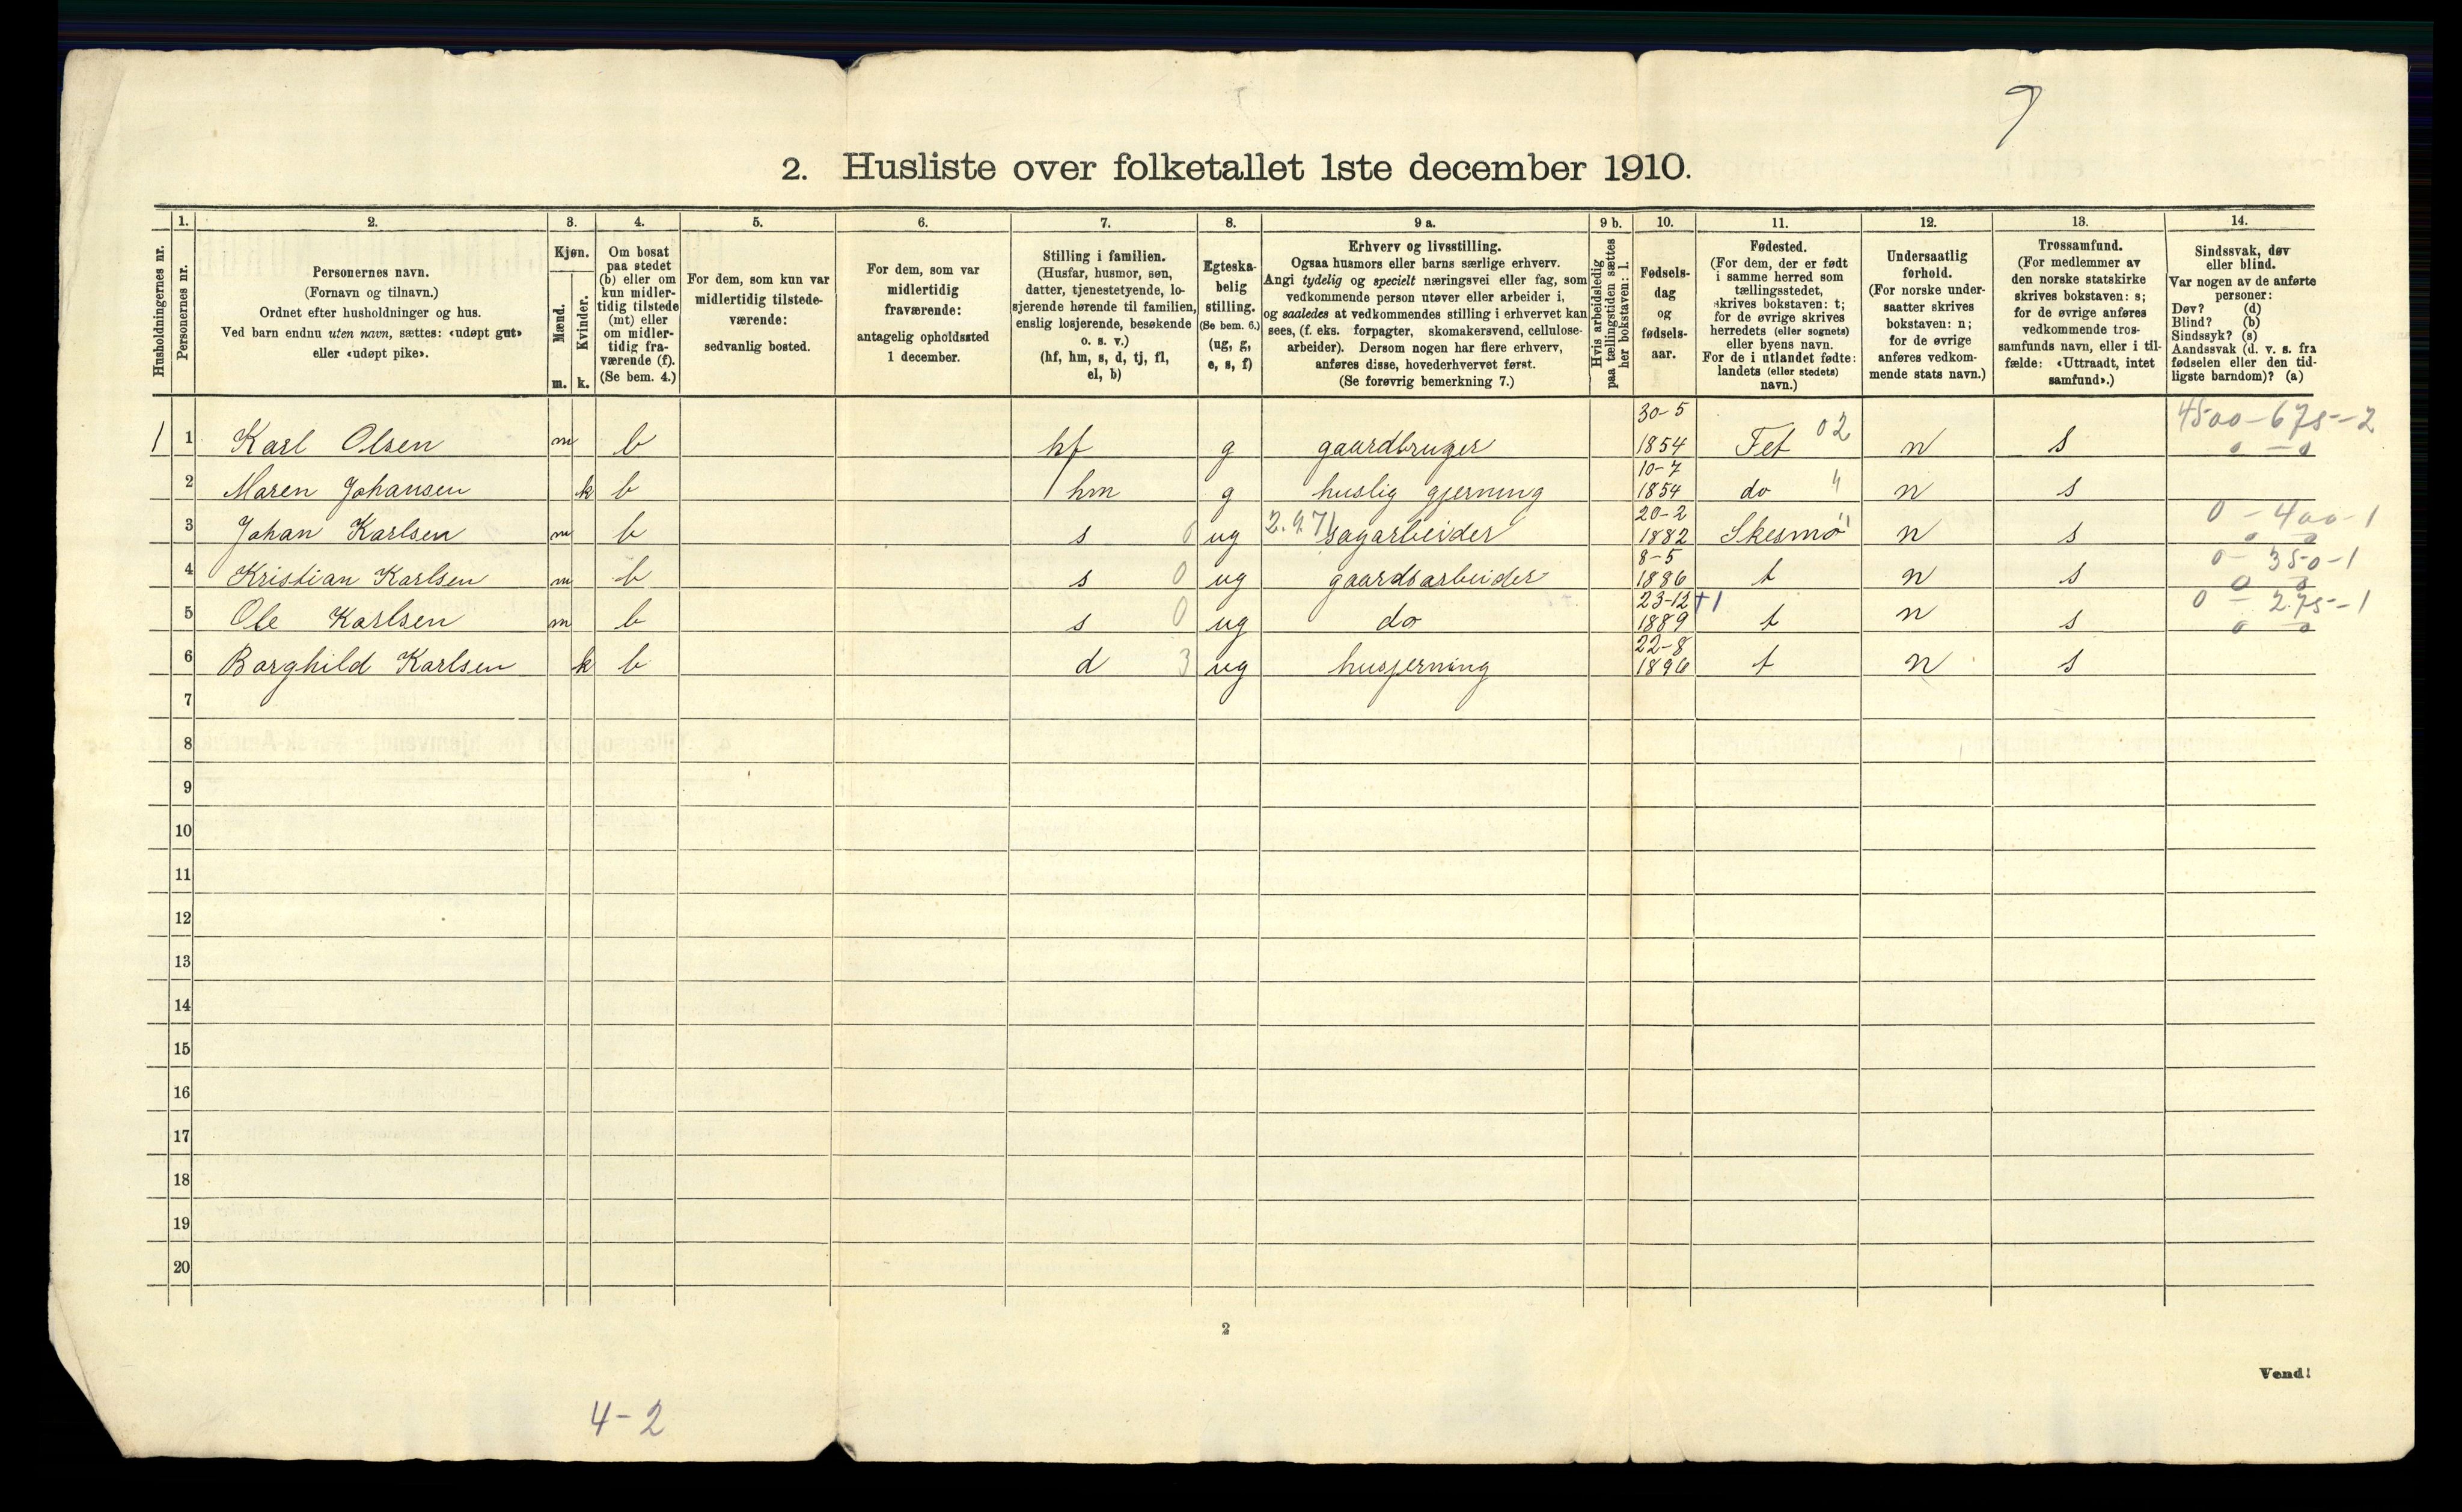 7
2. Husliste over folketallet 1ste december 1910.
Husholdningernes nr.
1.
Personernes nr.
2.
Personernes navn.
(Fornavn og tilnavn.)
Ordnet efter husholdninger og hus.
Ved barn endnu uten navn, sættes: «udøpt gut»
eller «udøpt pike».
3.
Kjøn.
Mænd.
Kvinder.
m. k.
4.
Om bosat
paa stedet
(b) eller om
kun midler-
tidig tilstede
(mt) eller
om midler-
tidig fra-
værende (f).
(Se bem. 4.)
5.
For dem, som kun var
midlertidig tilstede-
værende:
sedvanlig bosted.
6.
For dem, som var
midlertidig
fraværende:
antagelig opholdssted
1 december.
7.
Stilling i familien.
(Husfar, husmor, søn,
datter, tjenestetyende, lo-
sjerende hørende til familien,
enslig losjerende, besøkende
o. s. v.)
(hf, hm, s, d, tj, fl,
el, b)
8.
Egteska-
belig
stilling.
(Se bem. 6.)
(ug, g,
e, s, f)
9 a.
Erhverv og livsstilling.
Ogsaa husmors eller barns særlige erhverv.
Angi tydelig og specielt næringsvei eller fag, som
vedkommende person utøver eller arbeider i,
og saaledes at vedkommendes stilling i erhvervet kan
sees, (f. eks. forpagter, skomakersvend, cellulose-
arbeider). Dersom nogen har flere erhverv,
anføres disse, hovederhvervet først.
(Se forøvrig bemerkning 7.)
9 b.
Hvis arbeidsledig
paa tællingstiden sættes
her bokstaven: l.
10.
Fødsels-
dag
og
fødsels-
aar.
11.
Fødested.
(For dem, der er født
i samme herred som
tællingsstedet,
skrives bokstaven: t;
for de øvrige skrives
herredets (eller sognets)
eller byens navn.
For de i utlandet fødte:
landets (eller stedets)
navn.)
12.
Undersaatlig
forhold.
(For norske under-
saatter skrives
bokstaven: n;
for de øvrige
anføres vedkom-
mende stats navn.)
13.
Trossamfund.
(For medlemmer av
den norske statskirke
skrives bokstaven: s;
for de øvrige anføres
vedkommende tros-
samfunds navn, eller i til-
fælde: «Uttraadt, intet
samfund».)
14.
Sindssvak, døv
eller blind.
Var nogen av de anførte
personer:
Døv? (d)
Blind? (b)
Sindssyk? (s)
Aandssvak (d. v. s. fra
fødselen eller den tid-
ligste barndom)? (a)
1 1 Karl Olsen m b hf g gaardbruger 30-5 1854 Fet 02 n s 4500-675-2 0-0
2 Maren Johansen k b hm g huslig gjerning 10-7 1854 do " n s
3 Johan Karlsen m b s 0 ug sagarbeider 20-2 1882 Skesmo " n s 0-400-1 0 0
4 Kristian Karlsen m b s 0 ug gaardsarbeider 8-5 1886 t n s 0-350-1 0 0
5 Ole Karlsen m b s 0 ug do 23-12 1889 +1 t n s 0-275-1 0 0
6 Borghild Karlsen k b d 3 ug husjerning 22-8 1896 t n s
7
8
9
10
11
12
13
14
15
16
17
18
19
20
2
Vend!
4-2